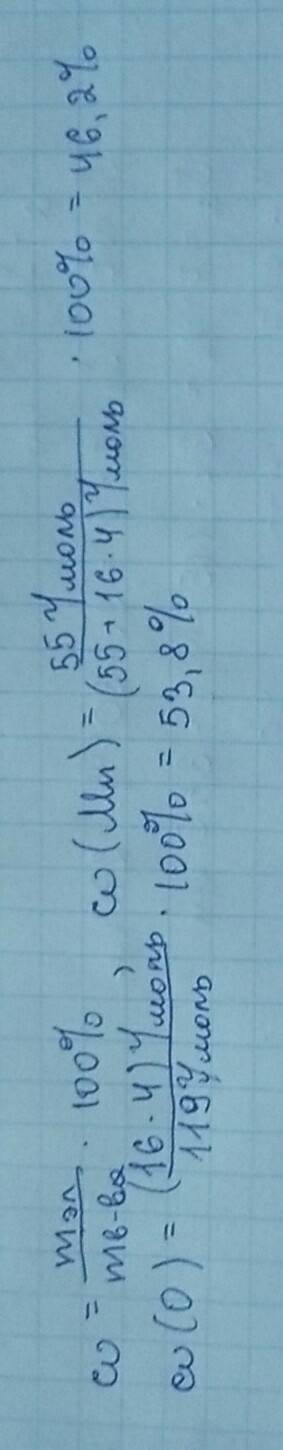 ω = mэл / mв-ва · 100%, ω(Mn) = 55 г/моль / (55 + 16 · 4) г/моль · 100% = 46,2%
ω(O) = (16 · 4) г/моль / 119 г/моль · 100% = 53,8%